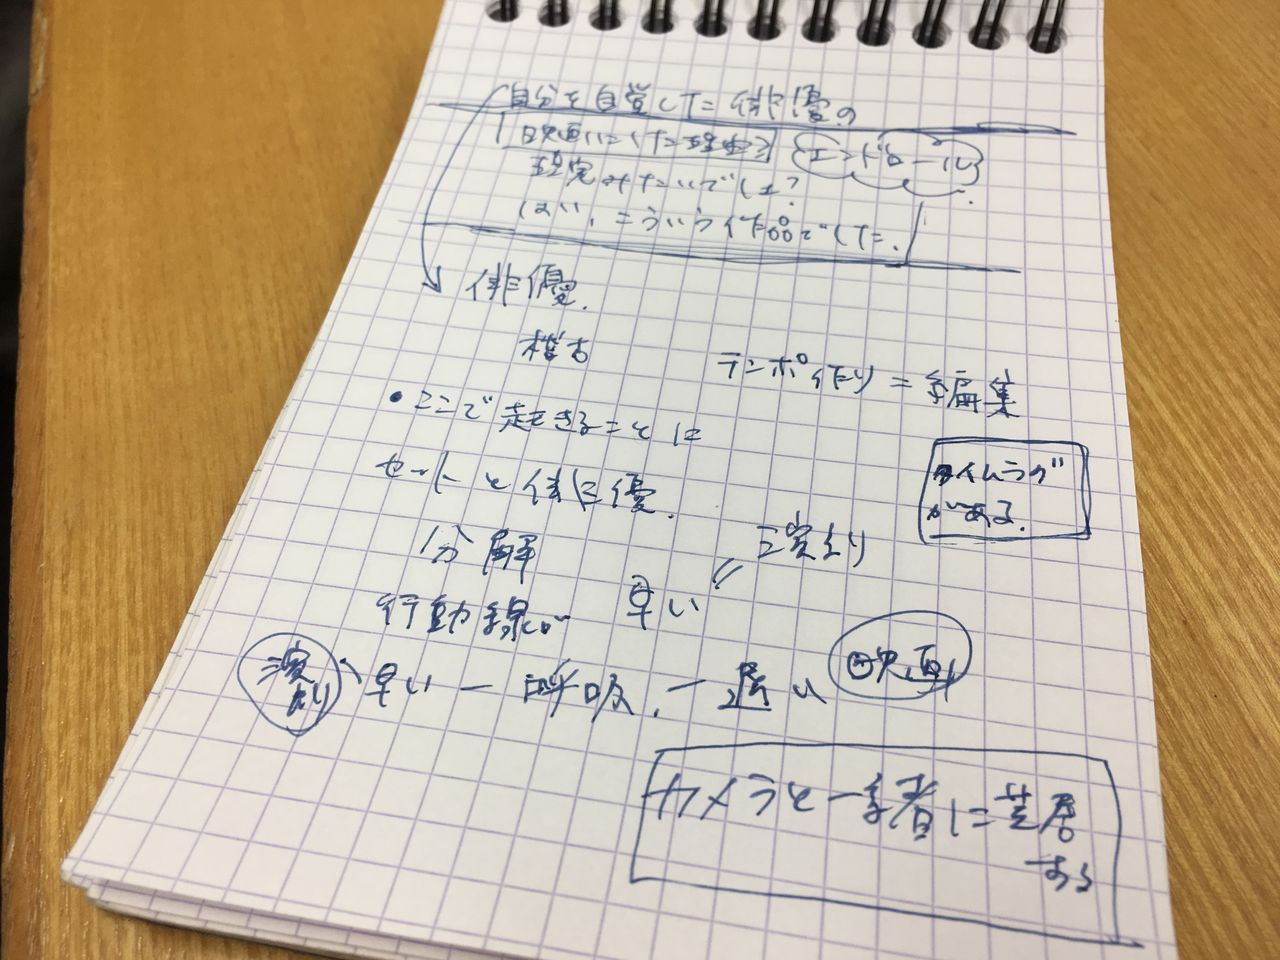 自分を自覚した俳優の
映画にした理由
エンドロール
現実みたいでしょ?
はい、こういう作品でした.
俳優.
稽古
テンポ作り = 編集
・ここで起きることに
セットと俳優.
タイムラグ
がある.
分解
演出
行動線が 早い
演出 早い ー 呼吸. ー 遅い 映画
カメラと一緒に芝居
する